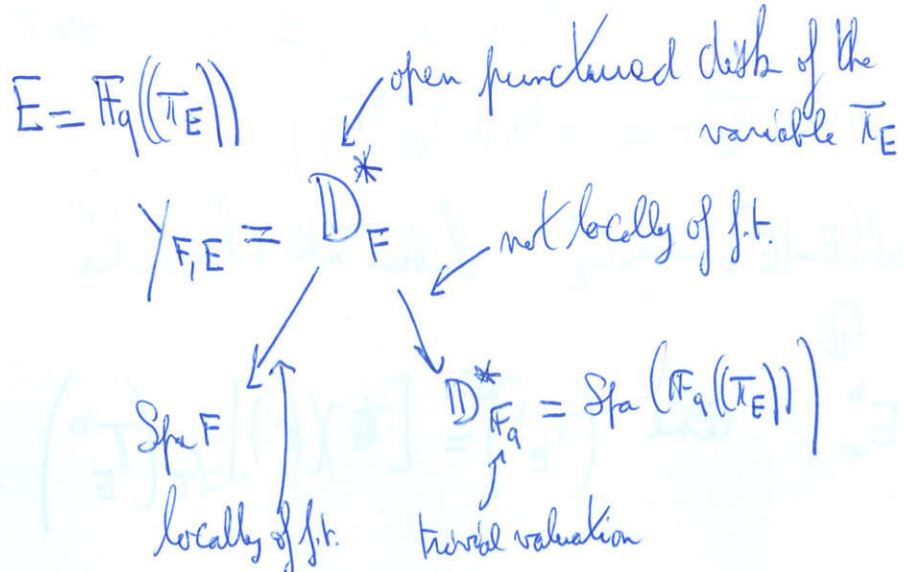 open punctured disk of the
variable π_E
E = 𝔽_q((π_E))
Y_{F,E} = 𝔻*_F
not locally of f.t.
Spa F
𝔻*_{𝔽_q} = Spa (𝔽_q((π_E)))
locally of f.t.
trivial valuation